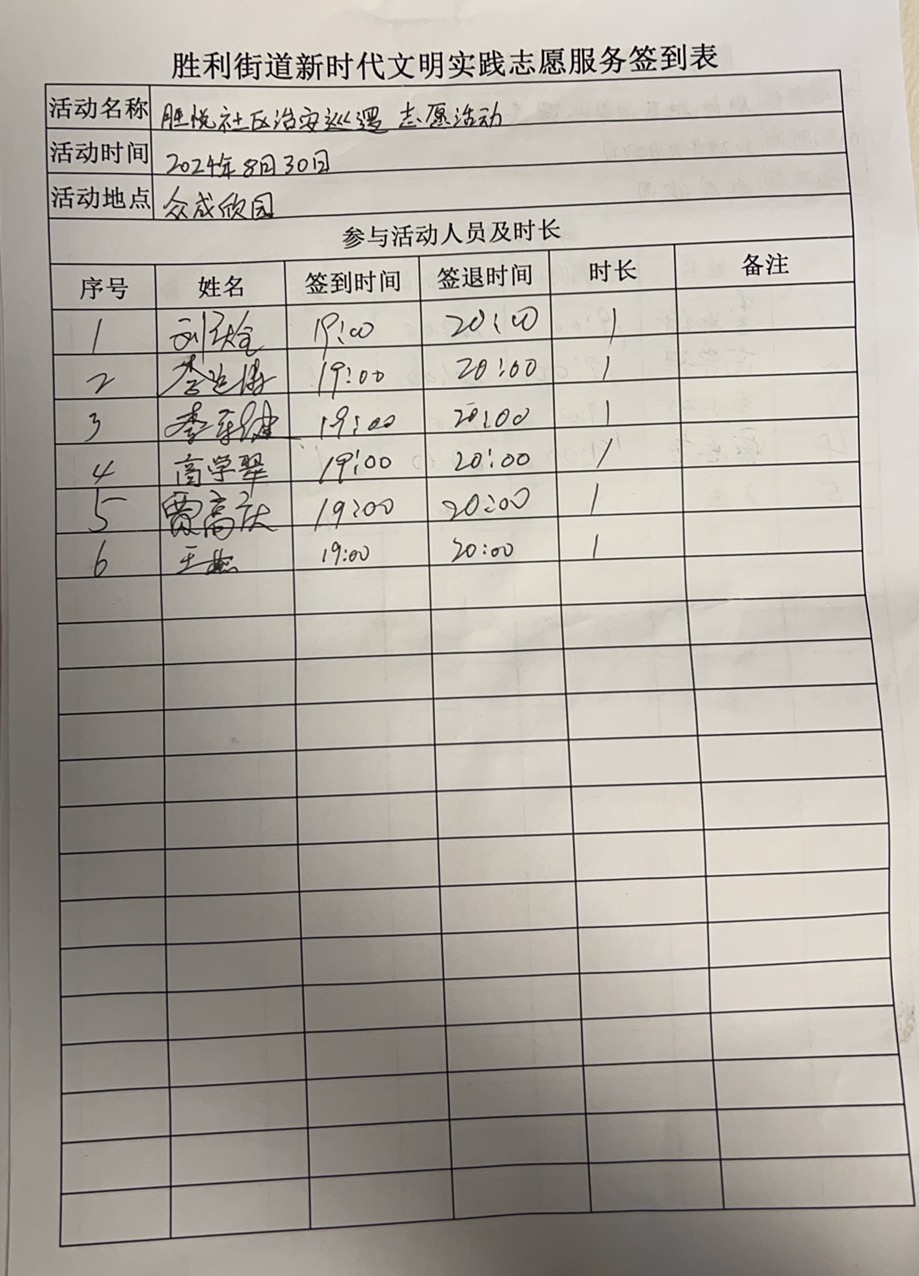 胜利街道新时代文明实践志愿服务签到表
活动名称 胜悦社区治安巡逻 志愿活动
活动时间 2024年8月30日
活动地点 众成欣园
参与活动人员及时长
序号 姓名 签到时间 签退时间 时长 备注
1 19:00 20:00 1
2 19:00 20:00 1
3 19:00 20:00 1
4 商学翠 19:00 20:00 1
5 贾高庆 19:00 20:00 1
6 王燕 19:00 20:00 1